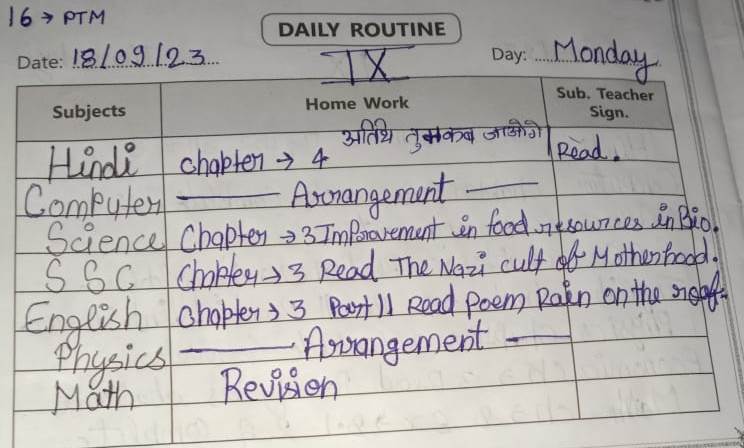 16 → PTM
DAILY ROUTINE
Date: 18/09/23 Day: Monday
IX
Subjects Home Work Sub. Teacher Sign.
Hindi chapter → 4 अतिथि तुम कब जाओगे Read.
Computer —— Arrangement ——
Science Chapter → 3 Improvement in food resources in Bio.
S S C Chapter → 3 Read The Nazi cult of Motherhood.
English Chapter → 3 Part II Read Poem Rain on the roof.
Physics —— Arrangement ——
Math Revision